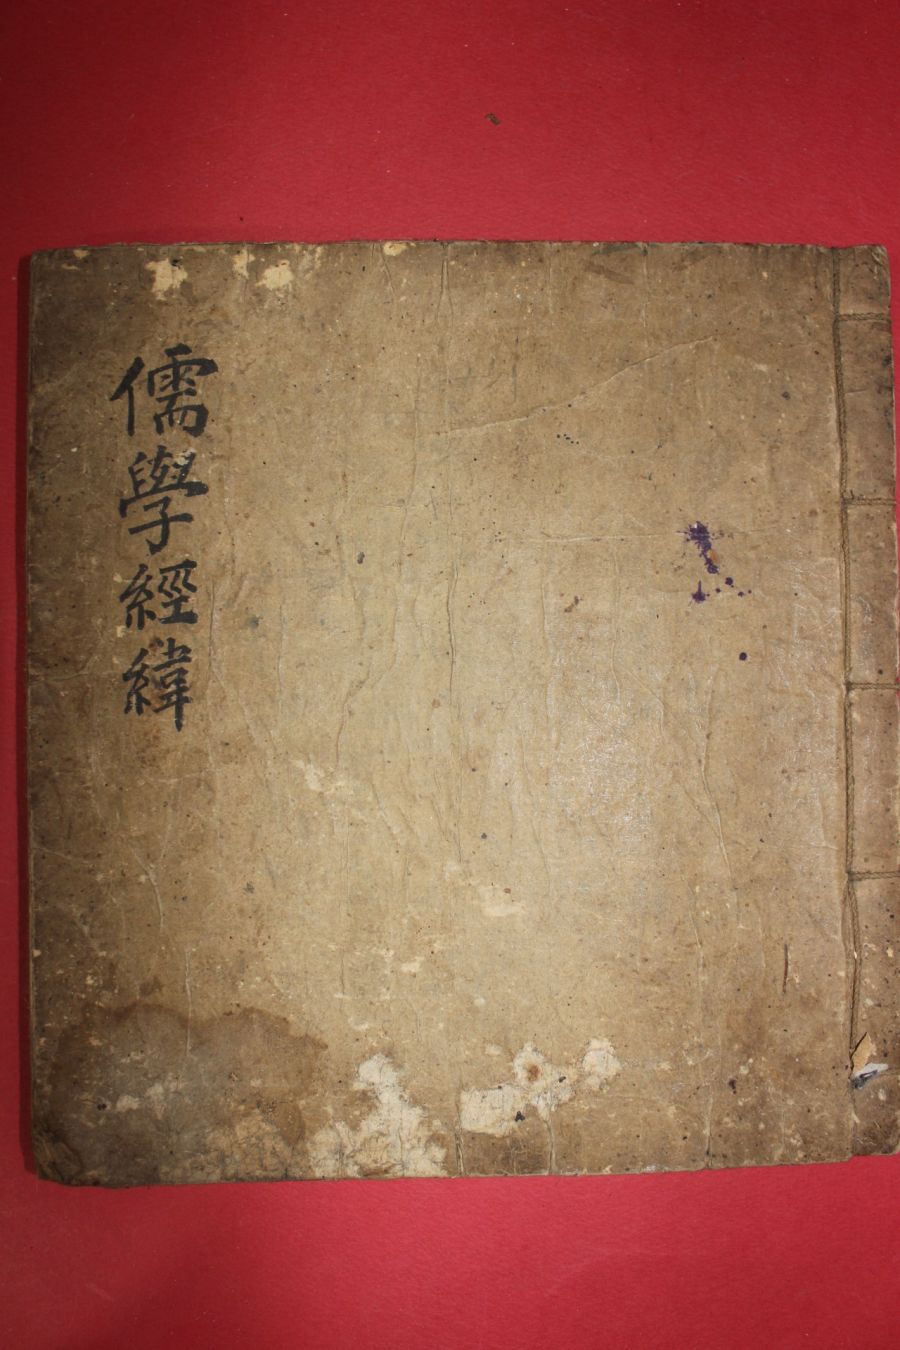 儒學經緯